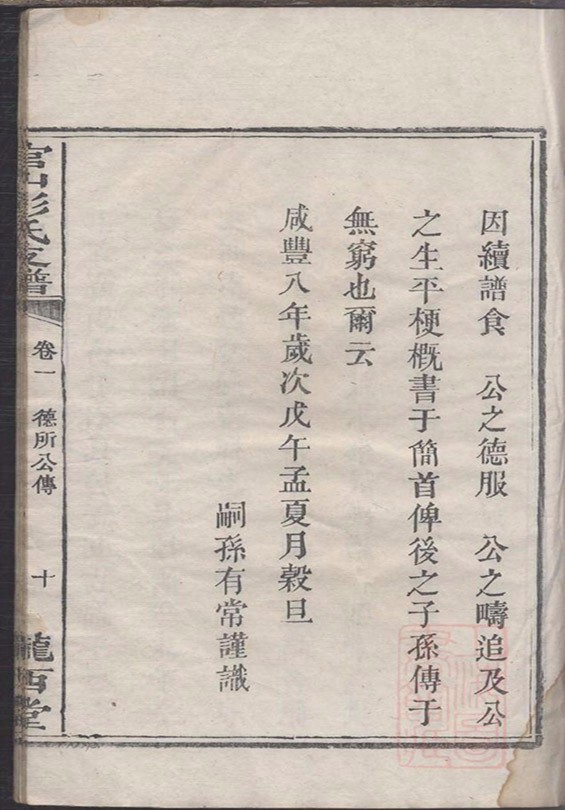 因續譜食　公之德服　公之疇追及公
之生平梗概書于簡首俾後之子孫傳于
無窮也爾云
咸豐八年歲次戊午孟夏月穀旦
嗣孫有常謹識
官山彭氏支譜
卷一　德所公傳
十
隴西堂